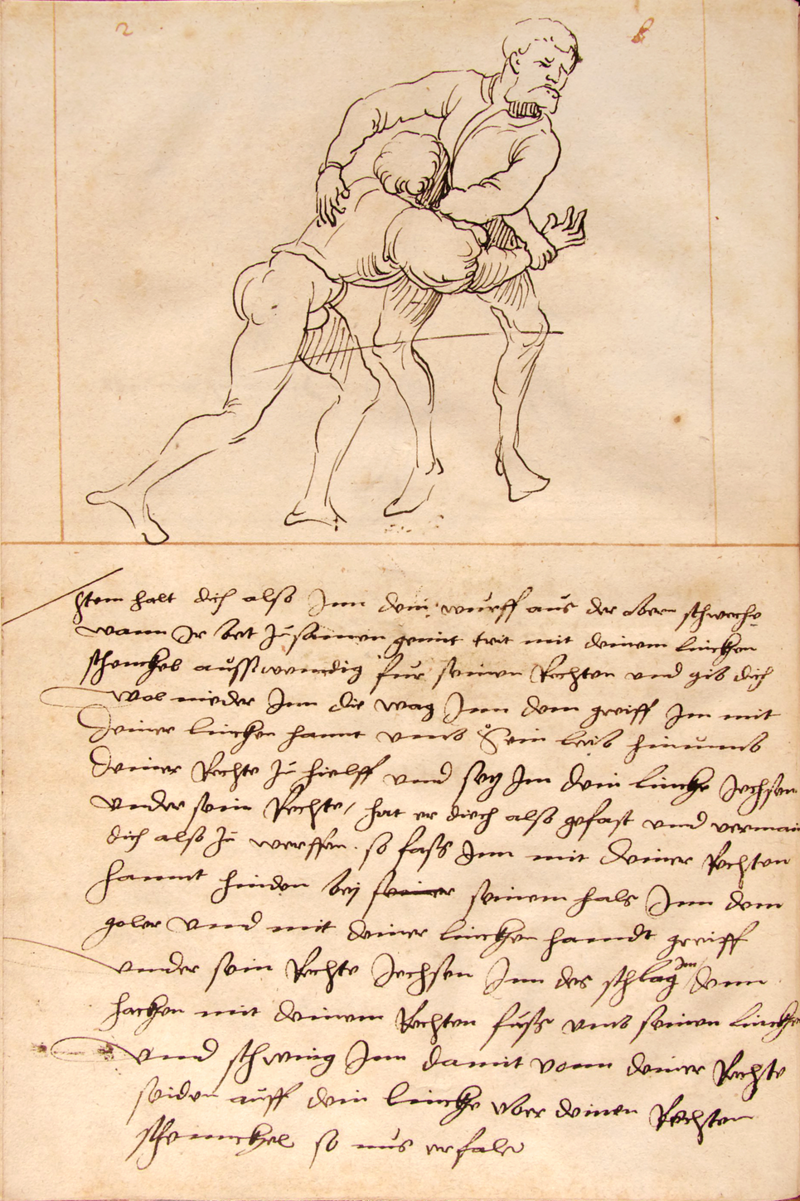 2 8
Item halt dich also Inn dem wurff aus der obern schweche
wann Ir bet zusamen gennt trit mit deinem lincken
schenckel ausswendig fur seinen Rechten und gib dich
wol nieder Inn die wag Inn dem greiff Im mit
deiner lincken hannt umb sein leib hinumb
deiner Rechte zu hielff und sey Im dein lincke Iechsen
under sein Rechte, hat er diech also gefast und vermai
dich also zu werffen. so fass Inn mit deiner Rechten
hannt hinden bey seiner seinem hals Inn dem
goler und mit deiner lincken handt greiff
under sein Rechte Iechsen Inn des schlag Im denn
hacken mit deinem Rechten fuss umb seinen lincke
und schwing Inn damit vonn deiner Rechte
seiden auff dein lincke uber deinen Rechten
schennckel so mus er fale